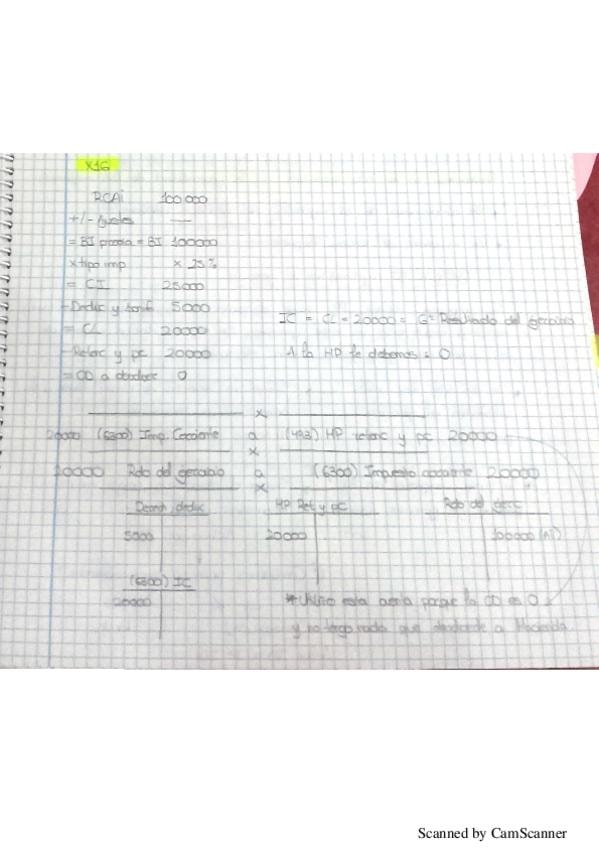 X1G
RCAi 100 000
+/- Ajustes —
= BI previa = BI 100000
x tipo imp x 25%
= CI 25000
- Deduc y bonif 5000
= CL 20000
- Retenc y pc 20000
= CD a deducir 0
IC = CL = 20000 = Gº Resultado del ejercicio
A la HP le debemos = 0
x
20000 (6300) Imp. Corriente a (473) HP retenc y pc 20000
x
20000 Rdo del ejercicio a (6300) Impuesto corriente 20000
x
deduc HP Ret y pC Rdo del ejerc
5000 20000 100000 (AI)
(6300) IC
20000
* Utilizo esta cuenta porque la CD es 0
y no tengo nada que a Hacienda
Scanned by CamScanner